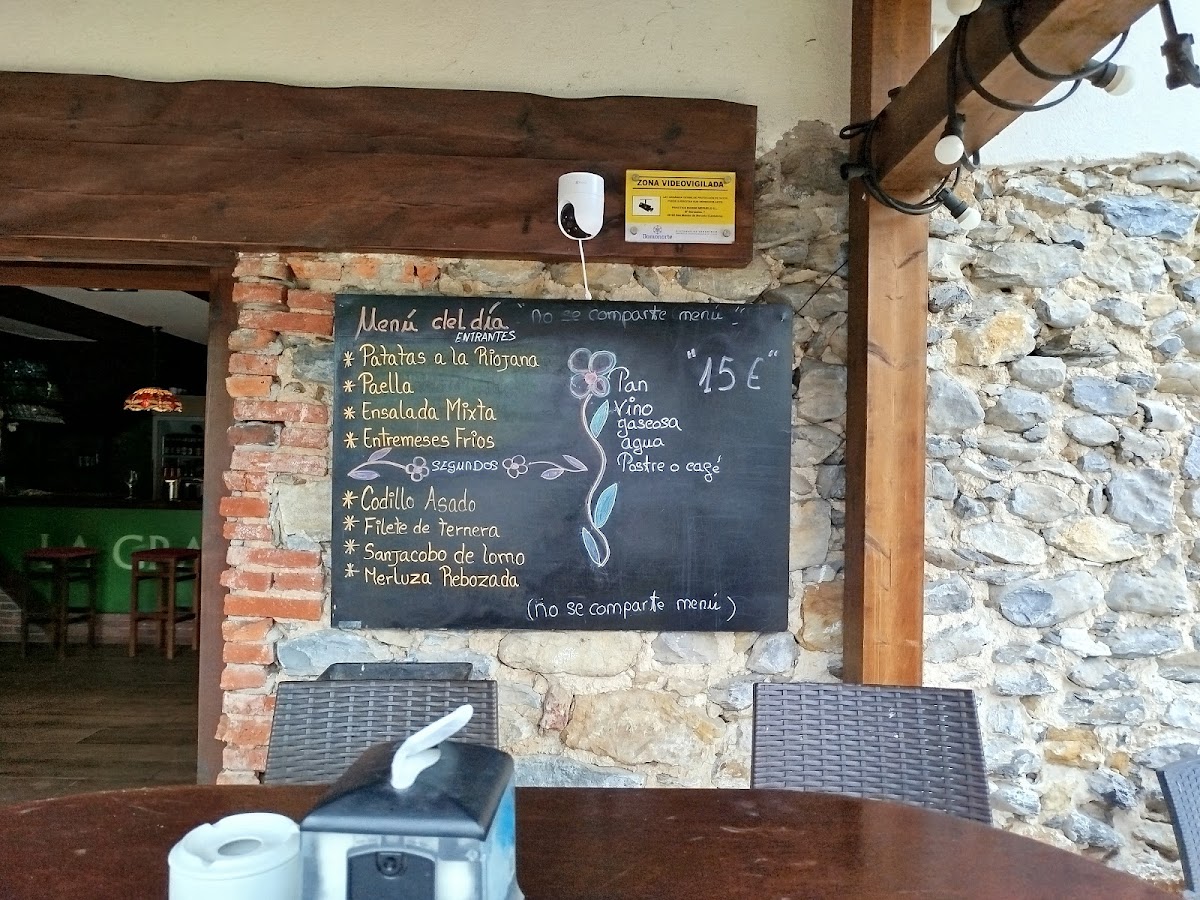 ZONA VIDEOVIGILADA
Menú del día "no se comparte menú"
ENTRANTES
* Patatas a la Riojana
* Paella
* Ensalada Mixta
* Entremeses Frios
SEGUNDOS
* Codillo Asado
* Filete de ternera
* Sanjacobo de lomo
* Merluza Rebozada
"15€"
Pan
Vino
gaseosa
agua
Postre o café
(no se comparte menú)
LA GRA